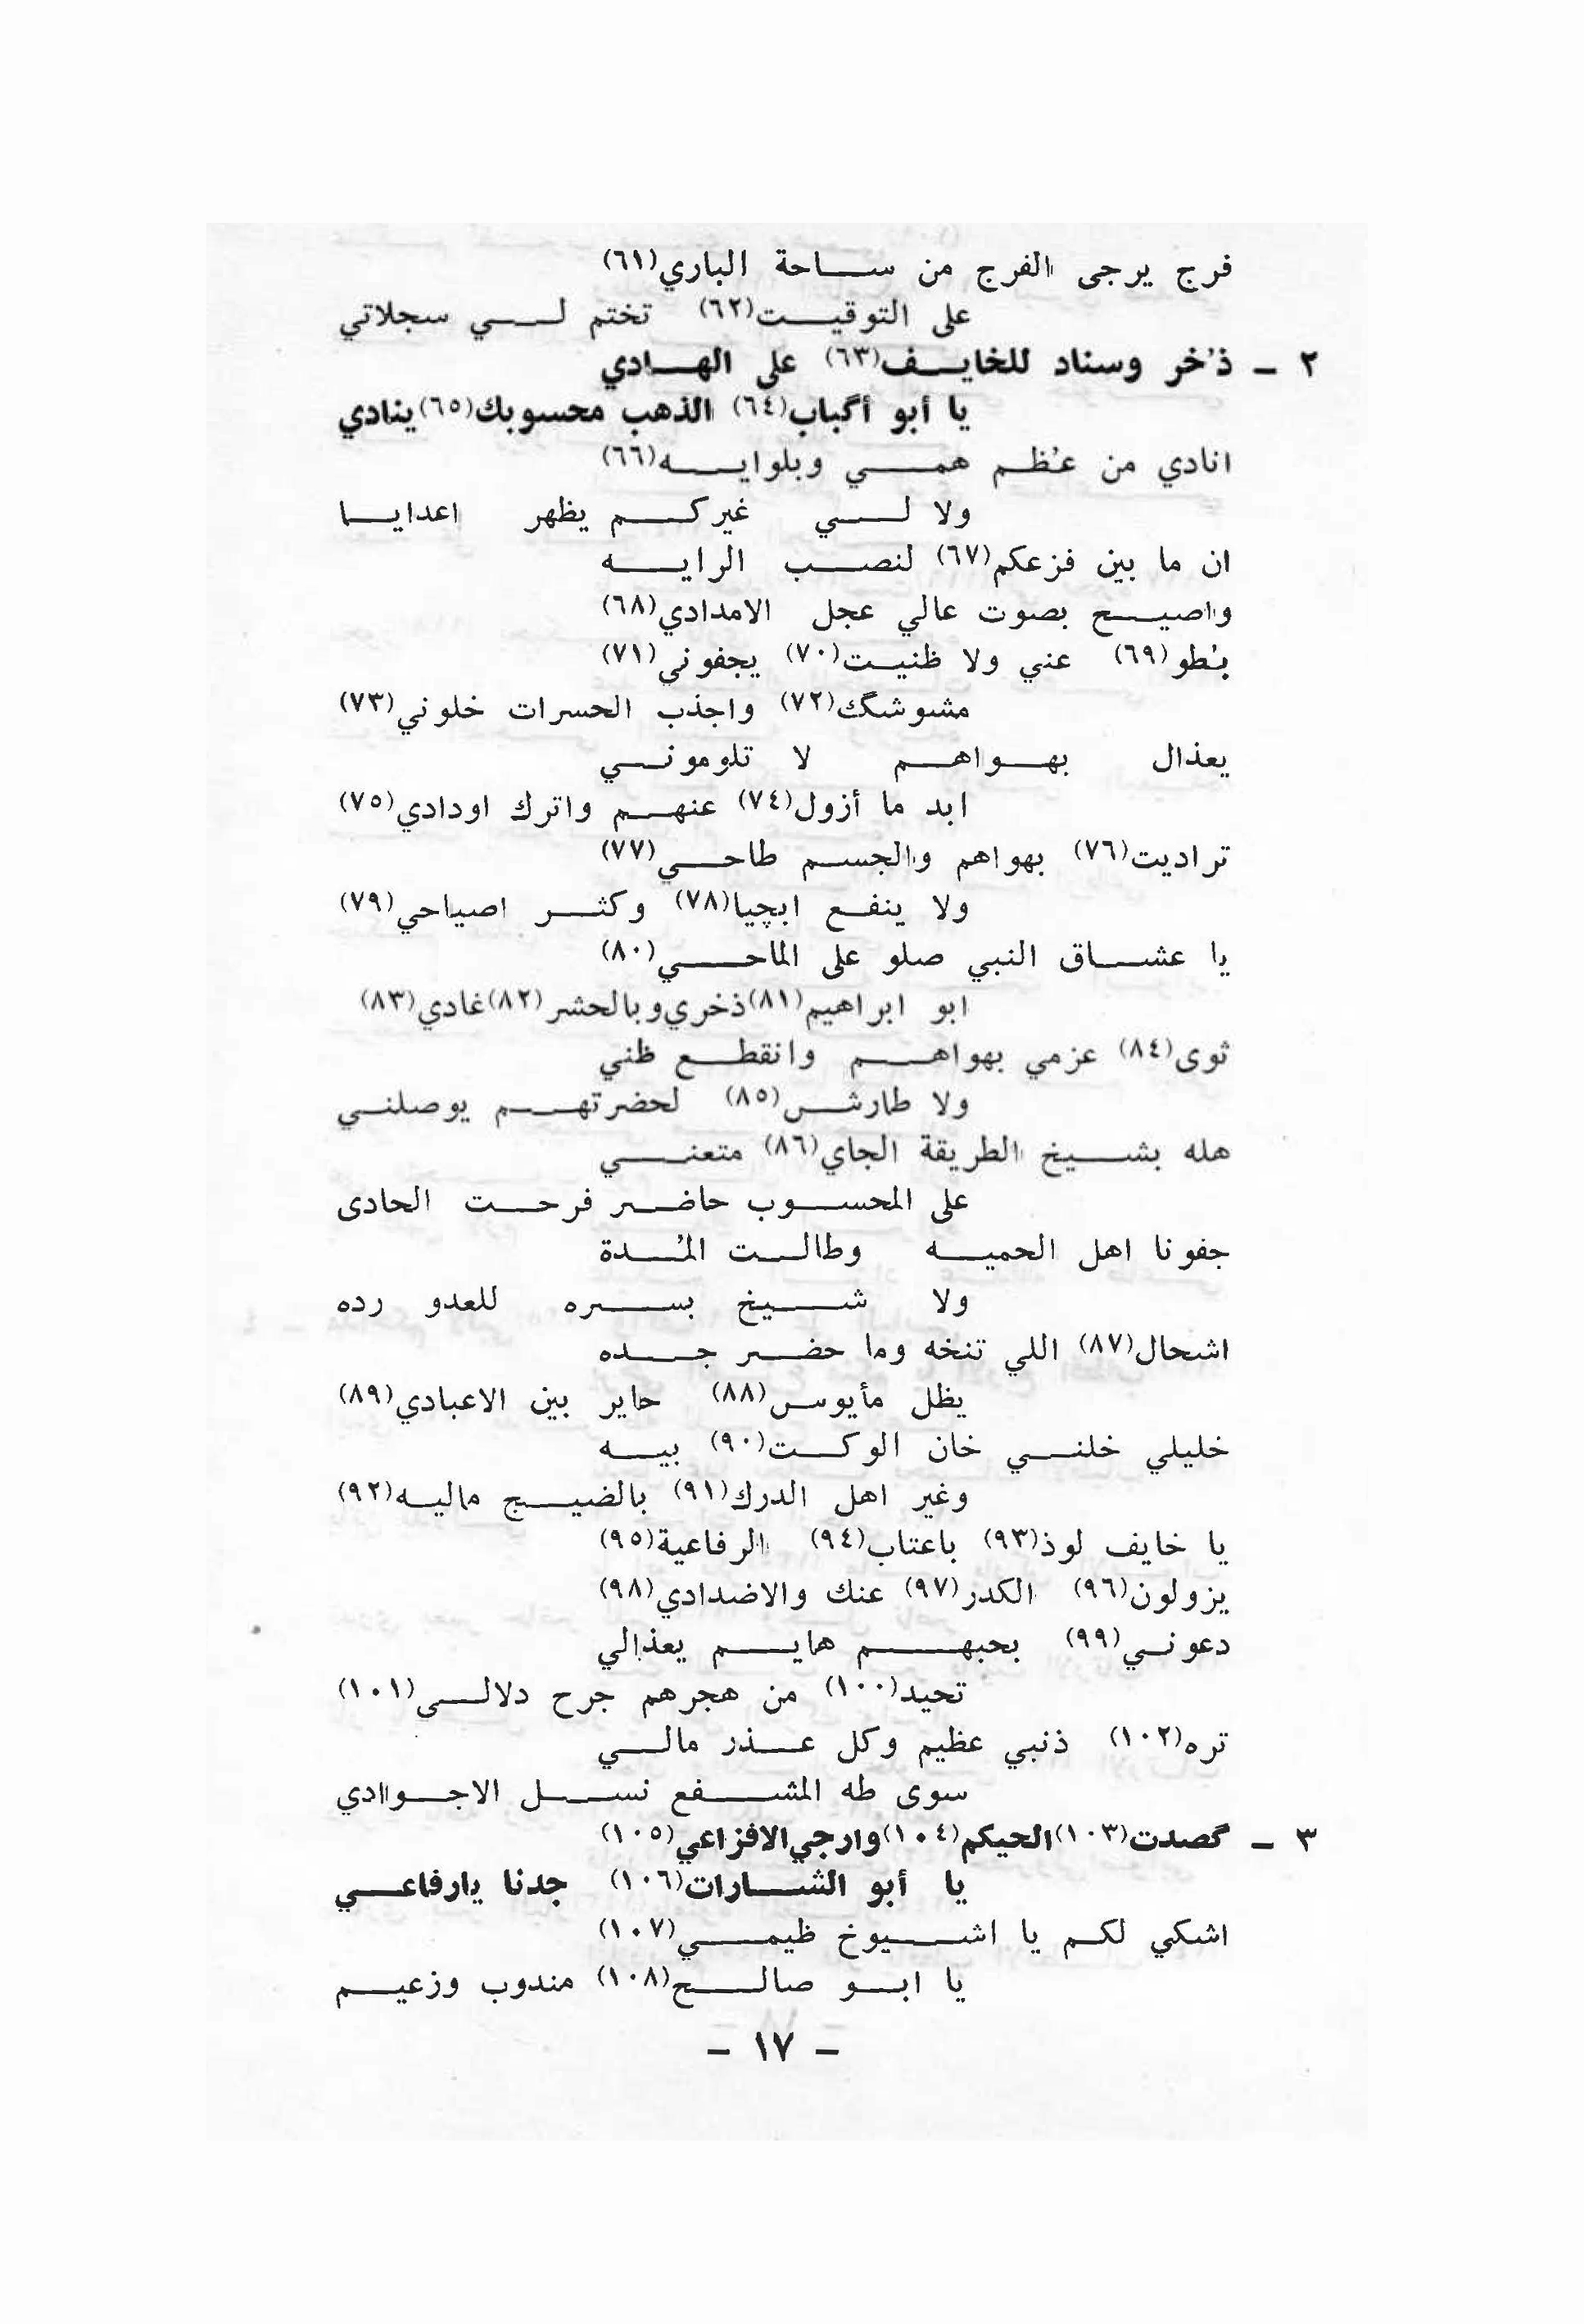 فرج يرجى الفرج من ساحة الباري(٦١)
على التوقيت(٦٢) تختم لي سجلاتي
٢ – ذُخر وسناد للخايف(٦٣) على الهادي
يا أبو أگباب(٦٤) الذهب محسوبك(٦٥) ينادي
انادي من عُظم همي وبلوايه(٦٦)
ولا لي غيركم يظهر اعدايا
ان ما بين فزعكم(٦٧) لنصب الرايه
واصيح بصوت عالي عجل الامدادي(٦٨)
بُطو(٦٩) عني ولا ظنيت(٧٠) يجفوني(٧١)
مشوشگك(٧٢) واجذب الحسرات خلوني(٧٣)
يعذال بهواهم لا تلوموني
ابد ما أزول(٧٤) عنهم واترك اودادي(٧٥)
تراديت(٧٦) بهواهم والجسم طاحي(٧٧)
ولا ينفع ابچيا(٧٨) وكثر اصياحي(٧٩)
يا عشاق النبي صلو على الماحي(٨٠)
ابو ابراهيم(٨١) ذخري وبالحشر(٨٢) غادي(٨٣)
ثوى(٨٤) عزمي بهواهم وانقطع ظني
ولا طارش(٨٥) لحضرتهم يوصلني
هله بشيخ الطريقة الجاي(٨٦) متعني
على المحسوب حاضر فرحت الحادى
جفونا اهل الحميه وطالت المُدة
ولا شيخ بسره للعدو رده
اشحال(٨٧) اللي تنخه وما حضر جده
يظل مأيوس(٨٨) حاير بين الاعبادي(٨٩)
خليلي خلني خان الوكت(٩٠) بيه
وغير اهل الدرك(٩١) بالضيج ماليه(٩٢)
يا خايف لوذ(٩٣) باعتاب(٩٤) الرفاعية(٩٥)
يزولون(٩٦) الكدر(٩٧) عنك والاضدادي(٩٨)
دعوني(٩٩) بحبهم هايم يعذالي
تحيد(١٠٠) من هجرهم جرح دلالى(١٠١)
تره(١٠٢) ذنبي عظيم وكل عذر مالي
سوى طه المشفع نسل الاجوادي
٣ – گصدت(١٠٣) الحيكم(١٠٤) وارجي الافزاعي(١٠٥)
يا أبو الشارات(١٠٦) جدنا يارفاعي
اشكي لكم يا اشيوخ ظيمي(١٠٧)
يا ابو صالح(١٠٨) مندوب وزعيم
– ١٧ –